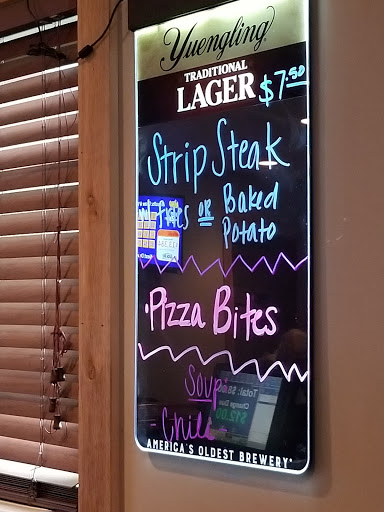 Yuengling
TRADITIONAL
LAGER $7.50
Strip Steak
fries or Baked
Potato
Pizza Bites
Soup:
- Chili -
AMERICA'S OLDEST BREWERY